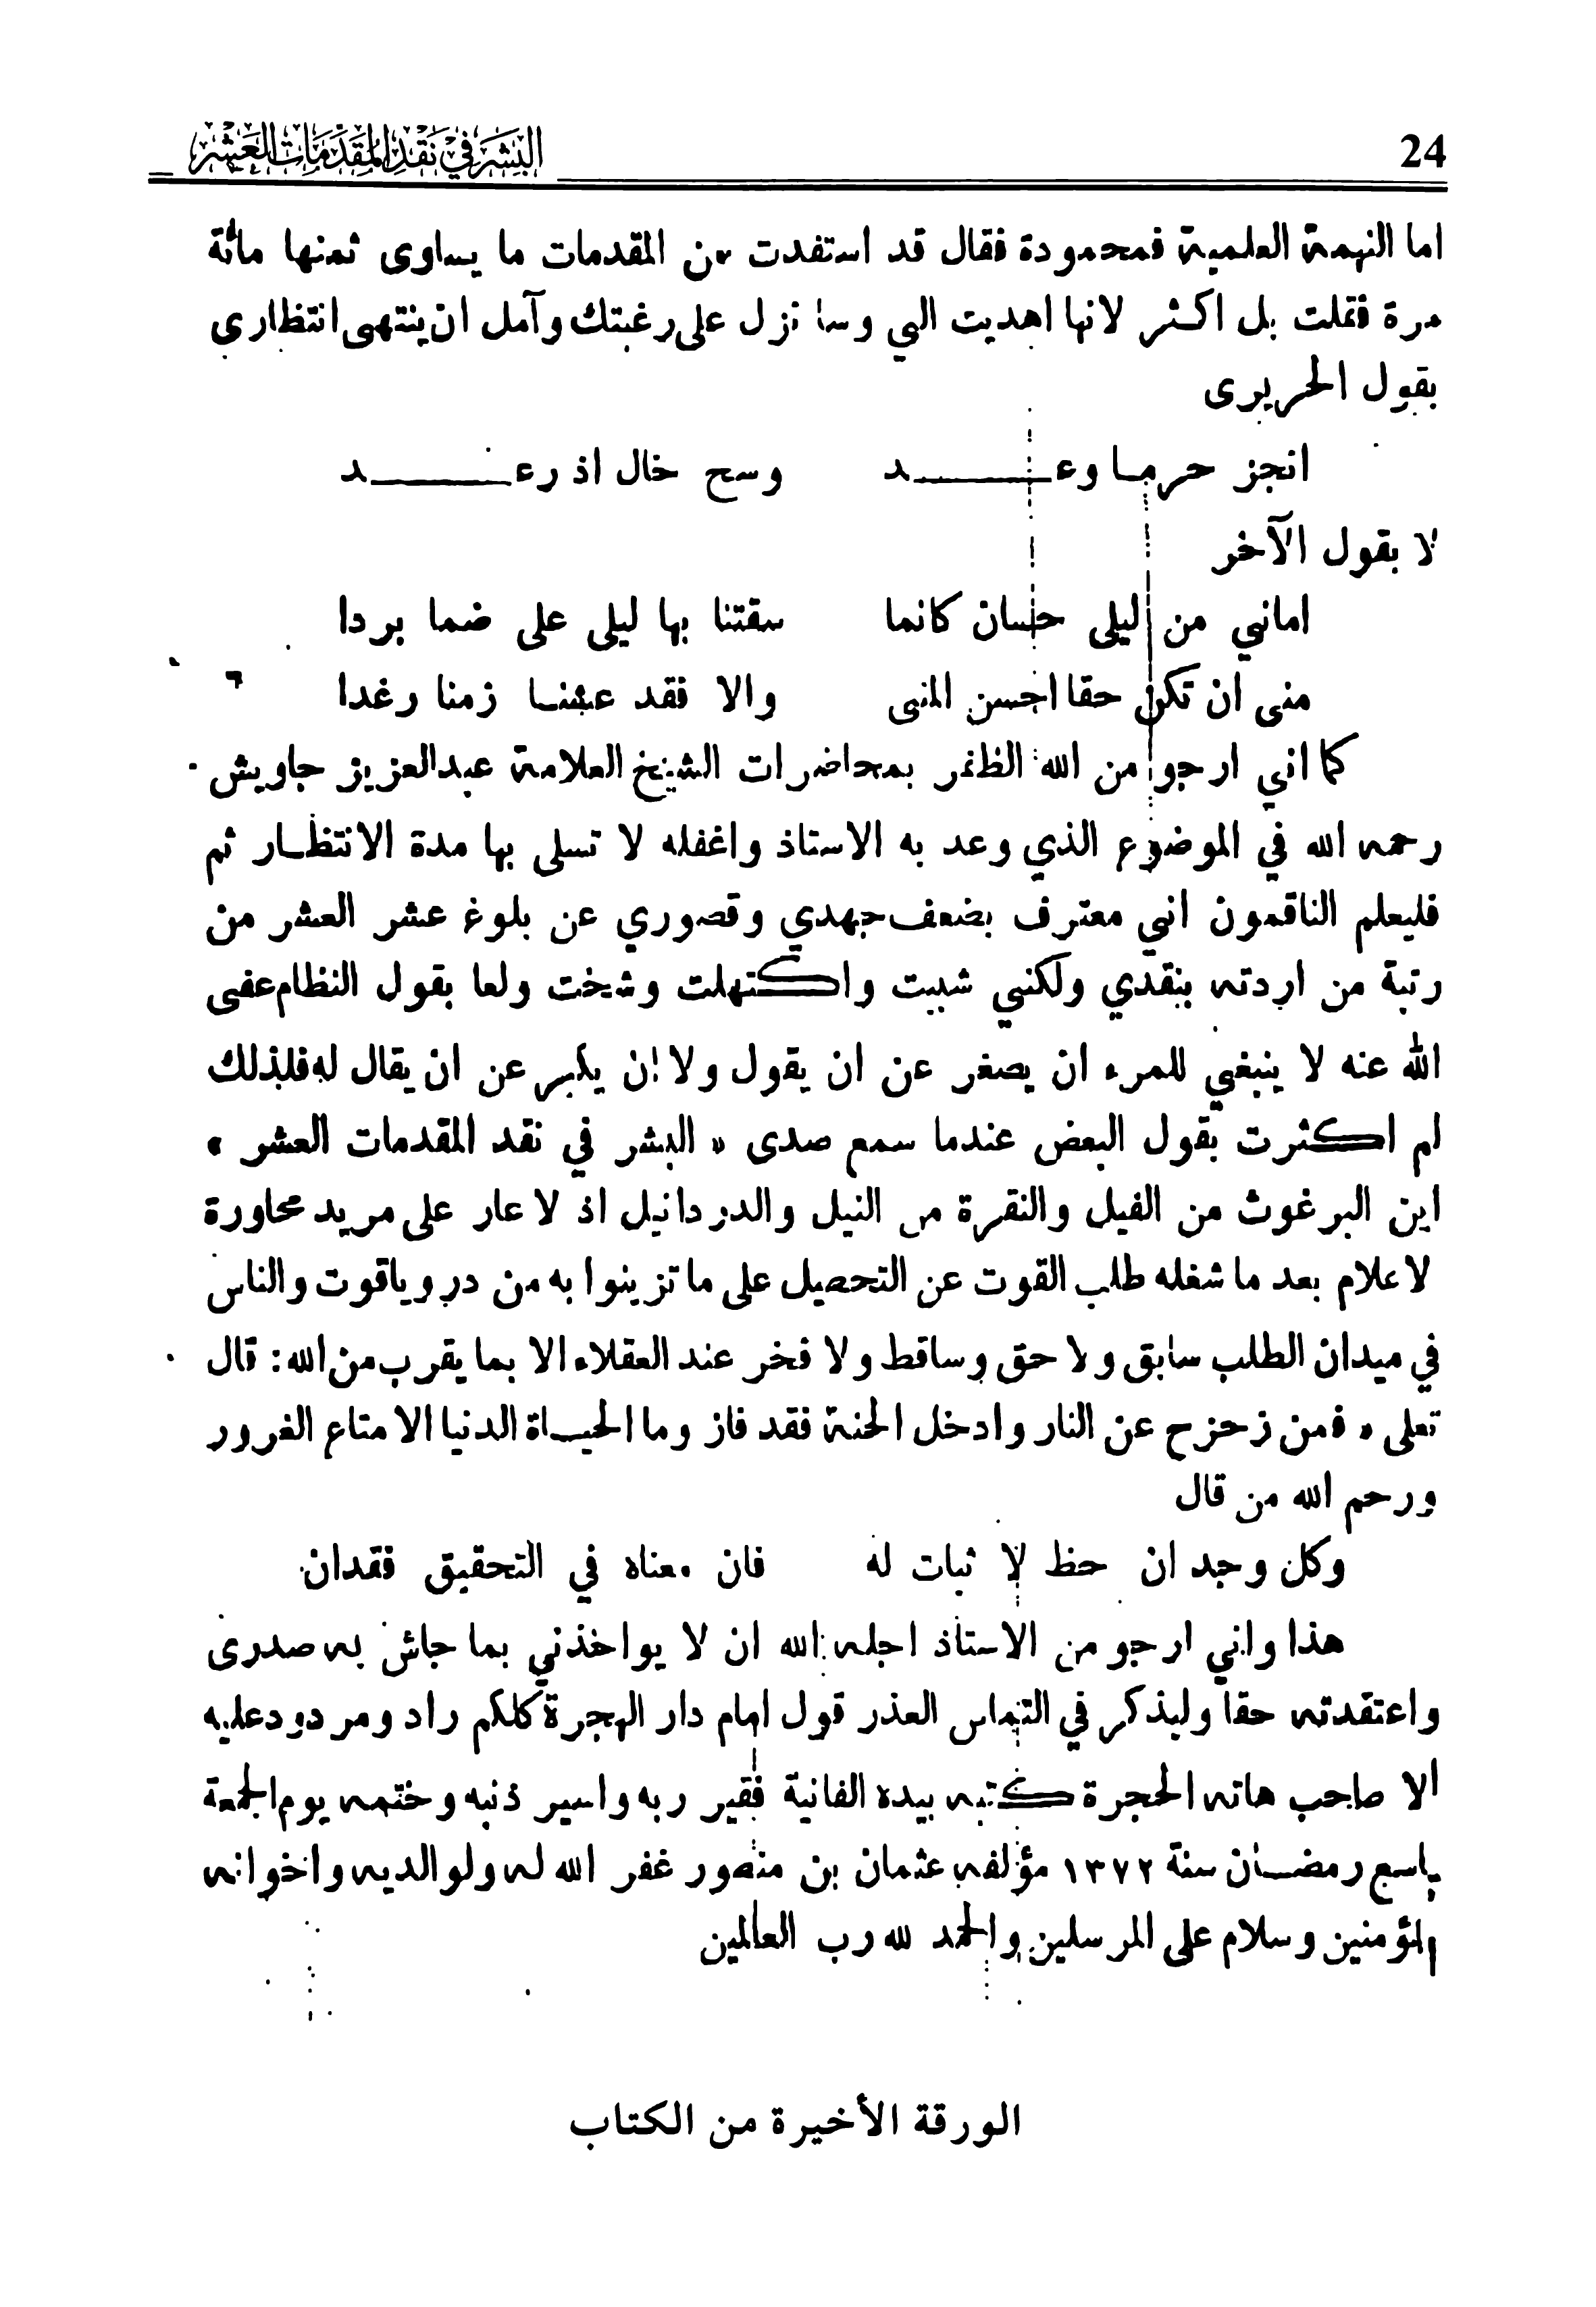 24
البشر في نقد المقدمات العشر
اما النهمة العلمية فمحمودة فقال قد استفدت من المقدمات ما يساوى ثمنها مائة
مرة فقلت بل اكثر لانها اهديت الي وسا نزل على رغبتك وآمل ان ينتهى انتظارى
بقول الحريرى
انجز حر ما وعــــد وسح خال اذ رعــــد
لا بقول الآخر
اماني من ليلى حسان كانما سقتنا بها ليلى على ضما بردا
منى ان تكن حقا احسن المنى والا فقد عشنا زمنا رغدا
كما اني ارجو من الله الظفر بمحاضرات الشيخ العلامة عبدالعزيز جاويش
رحمه الله في الموضوع الذي وعد به الاستاذ واغفله لا تسلى بها مدة الانتظار ثم
فليعلم الناقمون اني معترف بضعف جهدي وقصوري عن بلوغ عشر العشر من
رتبة من اردته بنقدي ولكنني شبيت واكتهلت وشخت ولعا بقول النظام عفى
الله عنه لا ينبغي للمرء ان يصغر عن ان يقول ولا ان يكبر عن ان يقال له فلذلك
لم اكثرت بقول البعض عندما سمع صدى « البشر في نقد المقدمات العشر »
اين البرغوث من الفيل والنقرة من النيل والدردانيل اذ لا عار على مريد محاورة
لاعلام بعد ما شغله طلب القوت عن التحصيل على ما تزينوا به من در وياقوت والناس
في ميدان الطلب سابق ولاحق وساقط ولا فخر عند العقلاء الا بما يقرب من الله: قال
تعلى « فمن زحزح عن النار وادخل الجنة فقد فاز وما الحياة الدنيا الا متاع الغرور
ورحم الله من قال
وكل وجد ان حظ لا ثبات له فان معناه في التحقيق فقدان
هذا واني ارجو من الاستاذ اجله الله ان لا يواخذني بما جاش به صدرى
واعتقدته حقا وليذكر في التماس العذر قول امام دار الهجرة كلكم راد ومردود عليه
الا صاحب هاته الحجرة كتبه بيده الفانية فقير ربه واسير ذنبه وختمه يوم الجمعة
تاسع رمضان سنة ١٣٧٢ مؤلفه عثمان بن منصور غفر الله له ولوالديه واخوانه
المؤمنين وسلام على المرسلين والحمد لله رب العالمين
الورقة الأخيرة من الكتاب